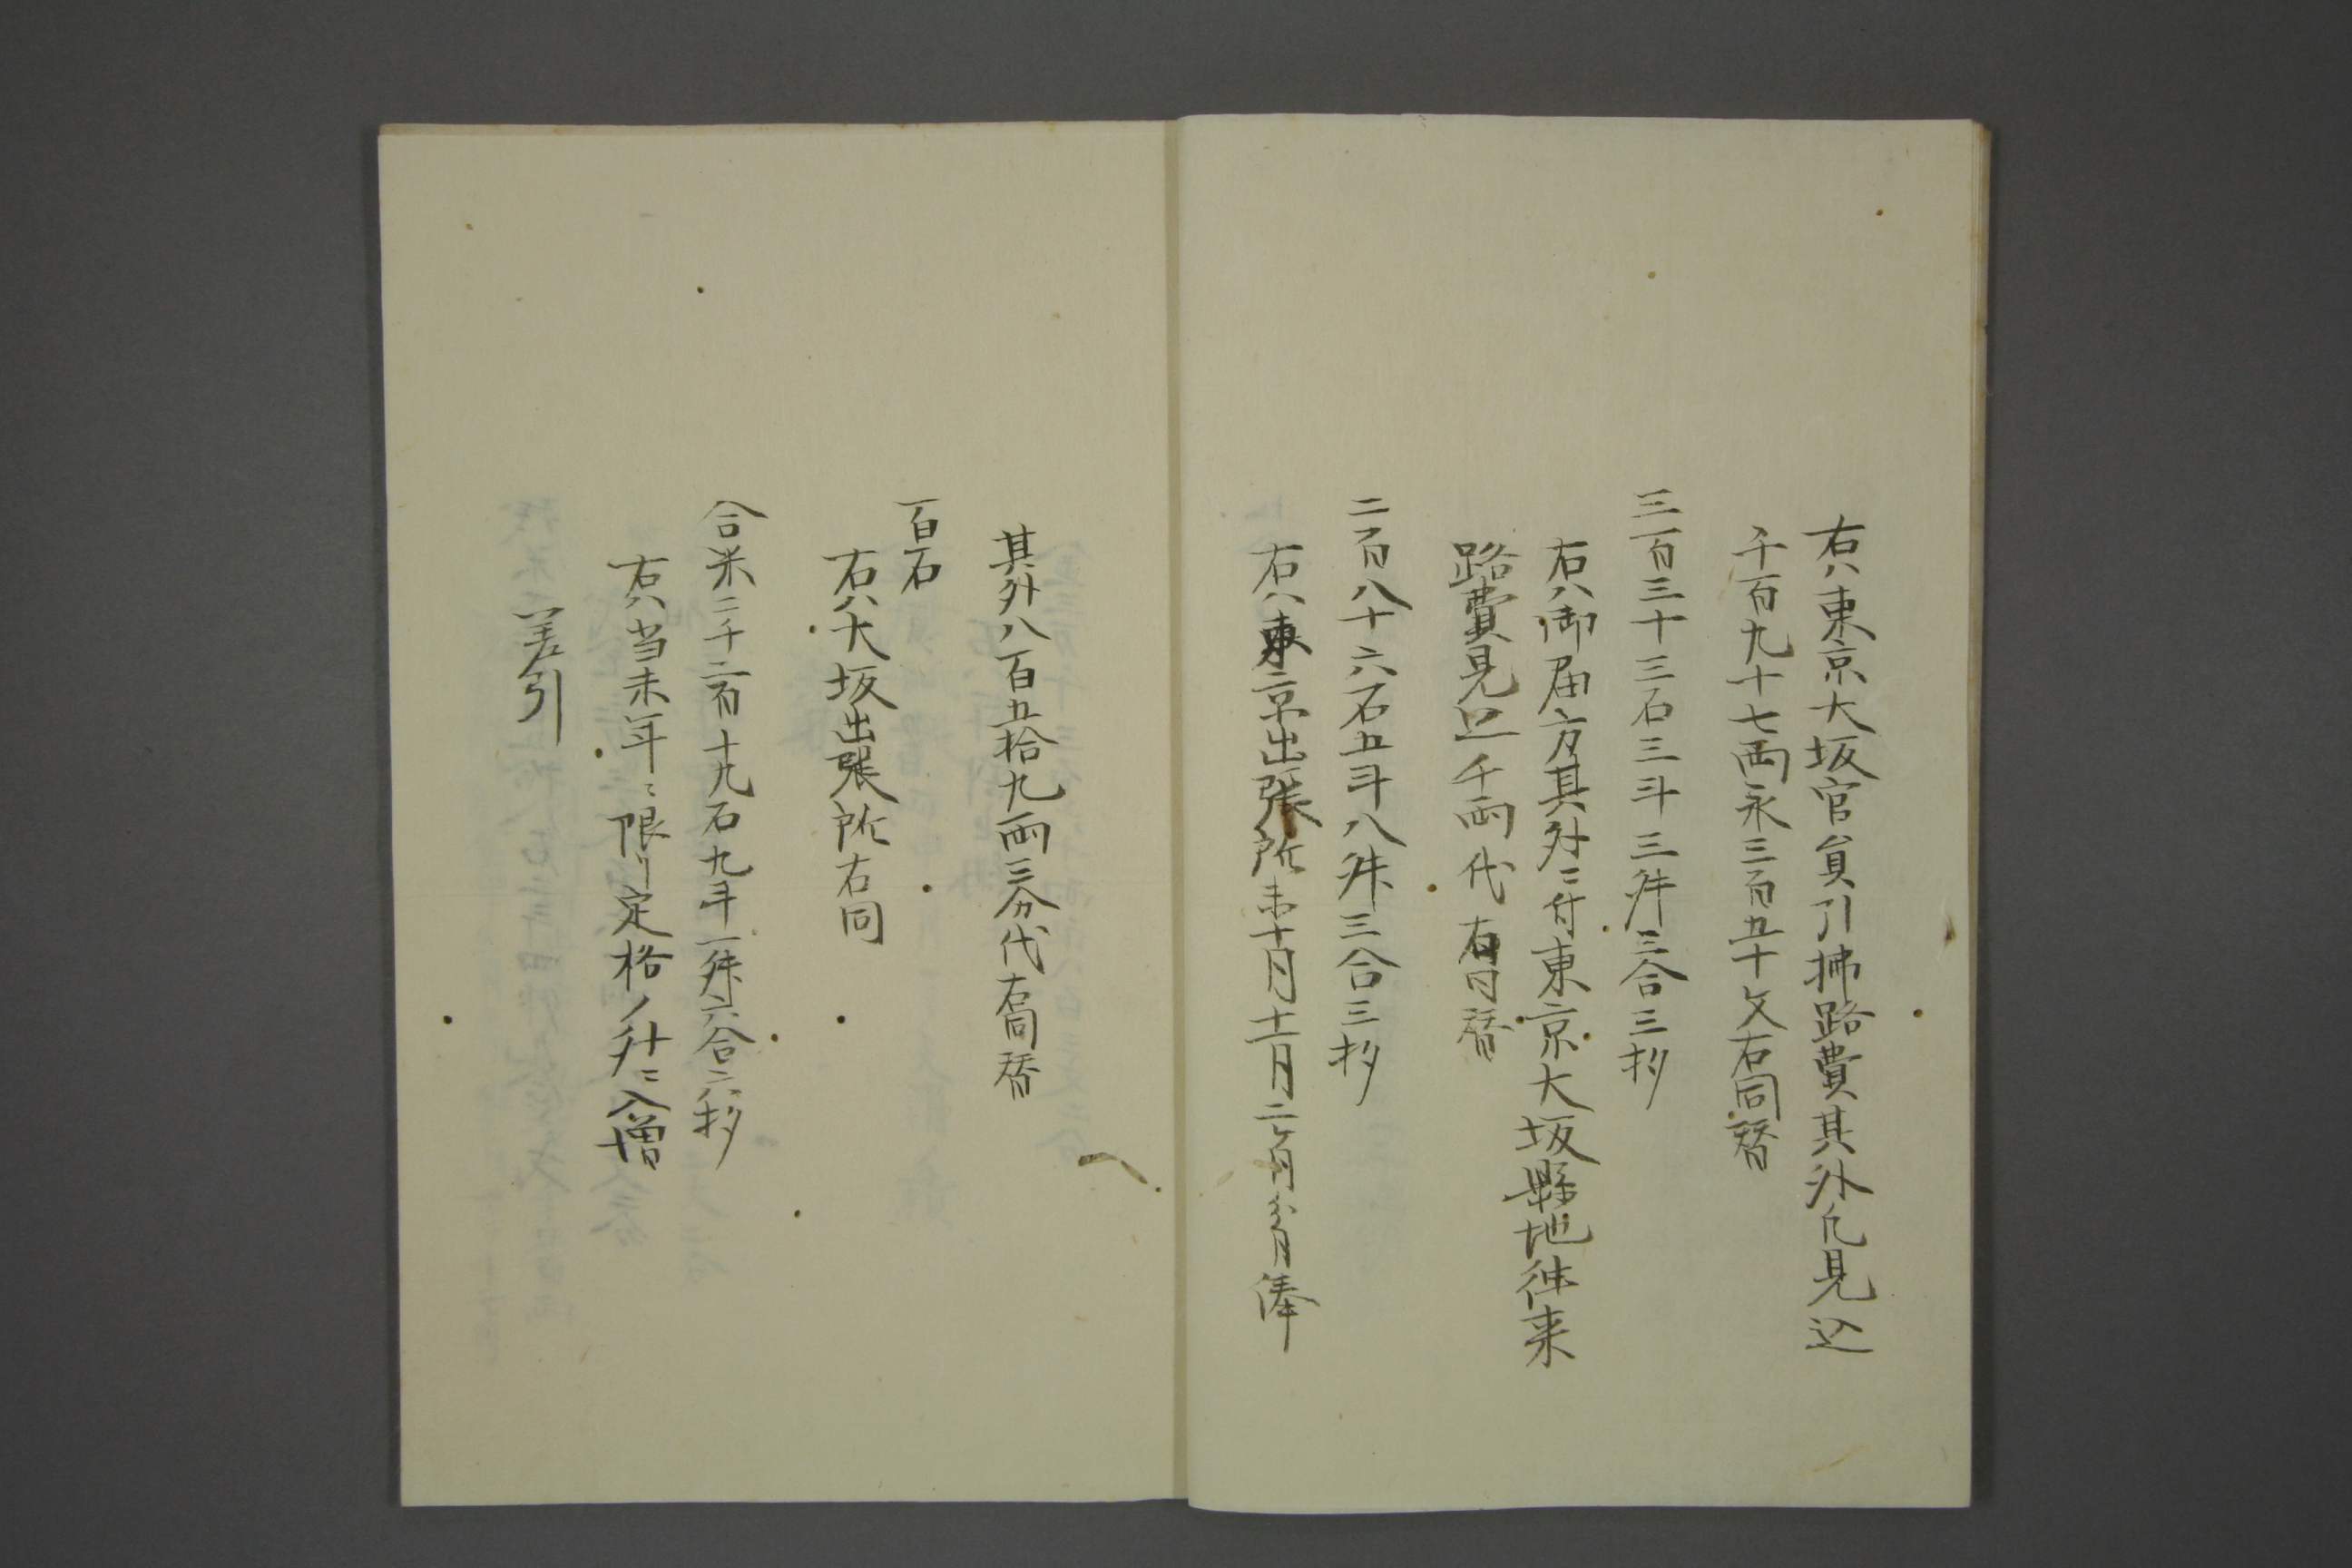 右ハ東京大坂官員引拂路費其外凡見込
千百九十七両永三百五十文右同替
三百三十三石三斗三升三合三抄
右ハ御届方其外ニ付東京大坂縣地往来
路費見込千両代右同替
二百八十六石五斗八升三合三抄
右ハ東京出張所未十月十一月二ケ月分月俸
其外八百五拾九両三分代右同替
百石
右ハ大坂出張所右同
合米二千二百十九石九斗一升六合六抄
右ハ当未年ニ限リ定格ノ外ニ入増
差引